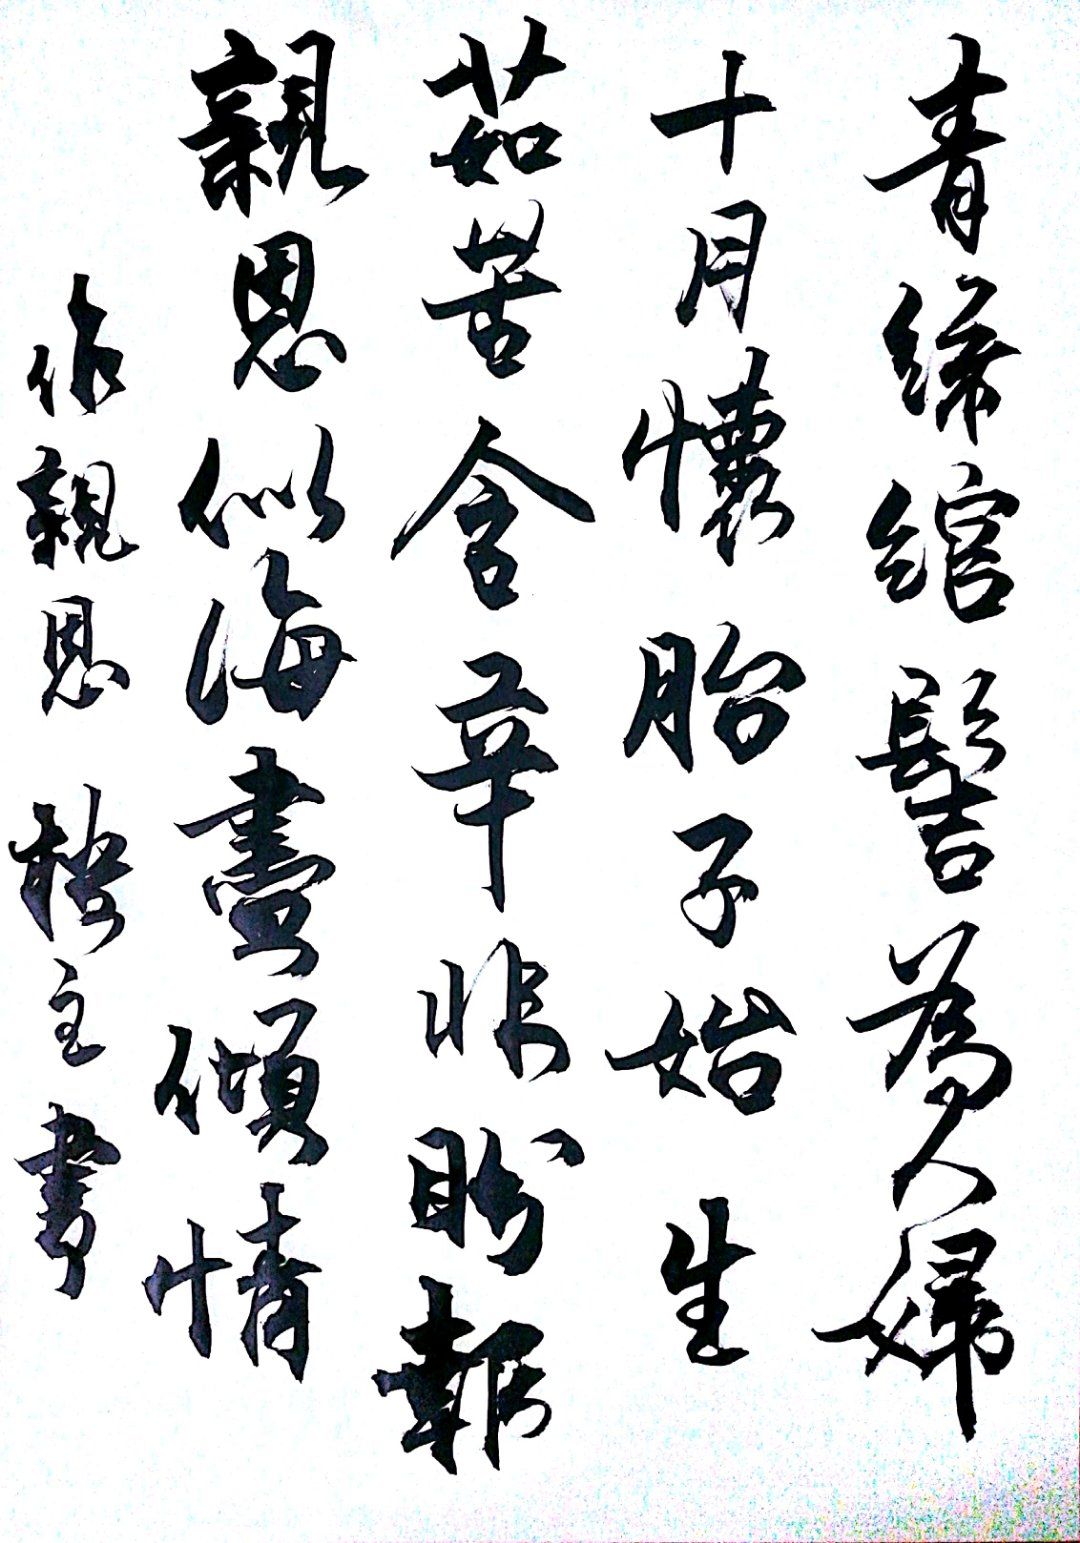 青絲綰髻為人婦
十月懷胎子始生
茹苦含辛非盼報
親恩似海盡傾情
作親恩 樓主書